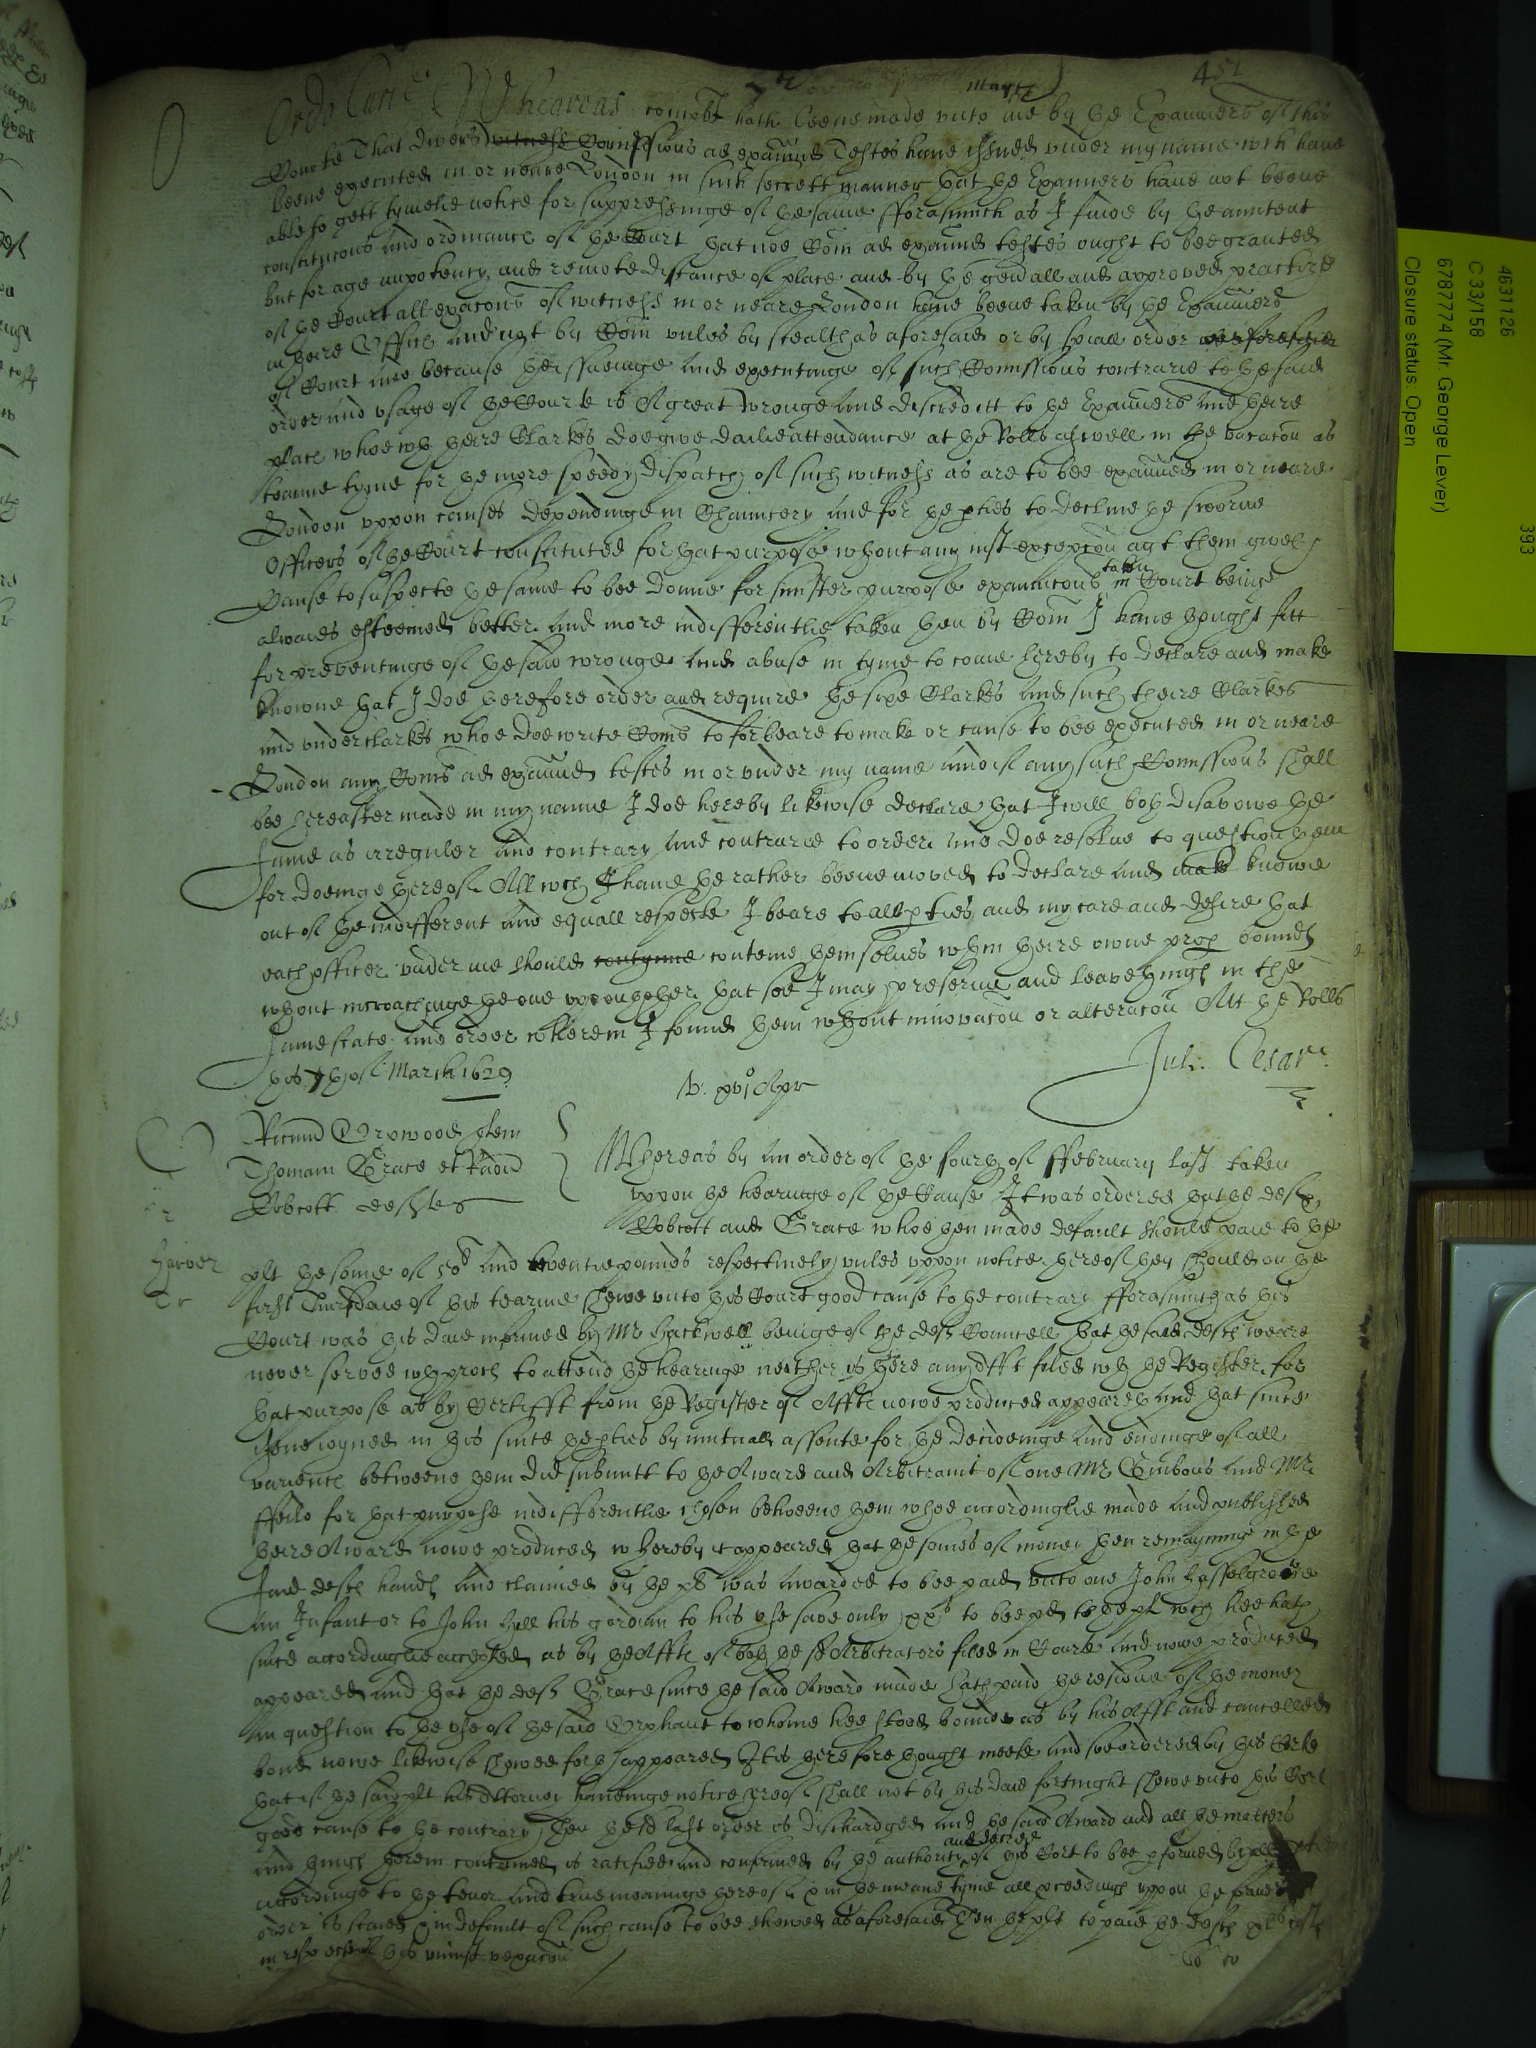 Martii
451
Ordo Curie Whereas complt hath beene made vnto me by the Examiners of this
Courte That divers witness Comissions ad examind Testes have issued vnder my name wch have
beene executed in or neare London in such secrett manner that the Examiners have not beene
able to gett tymelie notice for suppressinge of the same fforasmuch as I finde by the auncient
constitucons and ordinance of the Court that noe Com ad examind testes ought to bee graunted
but for age impotency and remote distance of place and by the genall and approoved practize
of the Court all exacons of witness in or neare London have beene taken by the Examiners
in theire Office and not by Com vnles by stealth as aforesaid or by speciall order
of Court and because the issueinge and executinge of such Comissions contrarie to the said
order and vsage of the Courte is A great wronge and discreditt to the Examiners and theire
place whoe wth theire Clarkes doe give dailie attendance at the Rolls aswell in the vacacon as
tearme tyme for the more speedy dispatch of such witness as are to bee examined in or neare
London vppon causes dependinge in Chauncery and for the pties to decline the sworne
Officers of the Court constituted for that purpose wthout any iust excepcon agt them giveth
Cause to suspecte the same to bee donne for sinister purpose examinacons taken in Court beinge
alwaies esteemed better and more indifferentlie taken then by Com I have thought fitt
for preventinge of the said wronge and abuse in tyme to come hereby to declare and make
knowne that I doe therefore order and require the sixe Clarkes and such theire Clarkes
and vnderclarkes whoe doe write Coms to forbeare to make or cause to bee executed in or neare
London any Coms ad examind testes in or vnder my name and if any such Comissions shall
bee hereafter made in my name I doe hereby likewise declare that I will both disavowe the
same as irreguler and contrary and contrarie to order and doe resolve to question them
for doeinge thereof All wch I have the rather beene moved to declare and make knowne
out of the indifferent and equall respecte I beare to all pties and my care and desire that
each officer vnder me should contynue conteine themselves wthin theire owne prop bounds
wthout incroachinge the one vppon thother that soe I may preserve and leave things in the
same state and order wherein I found them wthout innovacon or alteracon Att the Rolls
this 7th of March 1629
Jul: Cesar
V. xvjo Apr
Ricum Orpwood quem
Thomam Grace et David
Robcott defts
Whereas by an order of the fourth of ffebruary last taken
vppon the hearinge of the Cause It was ordered that the defts
Robcott and Grace whoe then made default should paie to the
plt the some of and twentie pounds respectively vnles vppon notice thereof they should on the
first Thursdaie of this tearme shewe vnto this Court good cause to the contrary fforasmuch as this
Court was this daie informed by Mr Hackwell beinge of the defts Councell that the said defts weare
never served wth proces to attend the hearinge neither is there any Afft filed wth the Register for
that purpose as by Certifft from the Register of Affts nowe produced appeareth and that since
issue ioyned in this suite the pties by mutuall assente for the decideinge and endinge of all
varience betweene them did submitt to the Award and Arbitramt of one Mr Gibbons and Mr
ffeild for that purpose indifferentlie chosen betweene them whoe accordinglie made and published
theire Award nowe produced whereby it appeared that the somes of money then remayninge in the
said defts hands and claimed by the plt was awarded to bee paid vnto one John Hasselgrove
an Infant or to John Hill his gardian to his vse save only xxs to bee pd to the plt wch hee hath
since accordinglie accepted as by the Affts of both the sd Arbitrators filed in Court and nowe produced
appeared and that the deft Grace since the said Award made hath paid the residue of the money
in question to the vse of the said Orphant to whome hee stood bounde as by his Afft and cancelled
bond nowe likewise shewed forth appeared It is therefore thought meete and soe ordered by this Court
that if the said plt his Attorney haveinge notice hereof shall not by this daie fortnight shewe vnto this Court
good cause to the contrary Then the sd last order is dischardged and the said Award and all the matters
and things therein conteined is ratified and confirmed by the authority and decree of this Court to bee pformed by all pties
accordinge to the tenor and true meaninge thereof in the meane tyme all proceedings vppon the former
order is staied in default of such cause to bee shewed as aforesaid Then the plt to paie the defts costs
in respecte of this vniust vexacon
4631126
C 33/158
6787774 (Mr. George Lever)
Closure status: Open
393